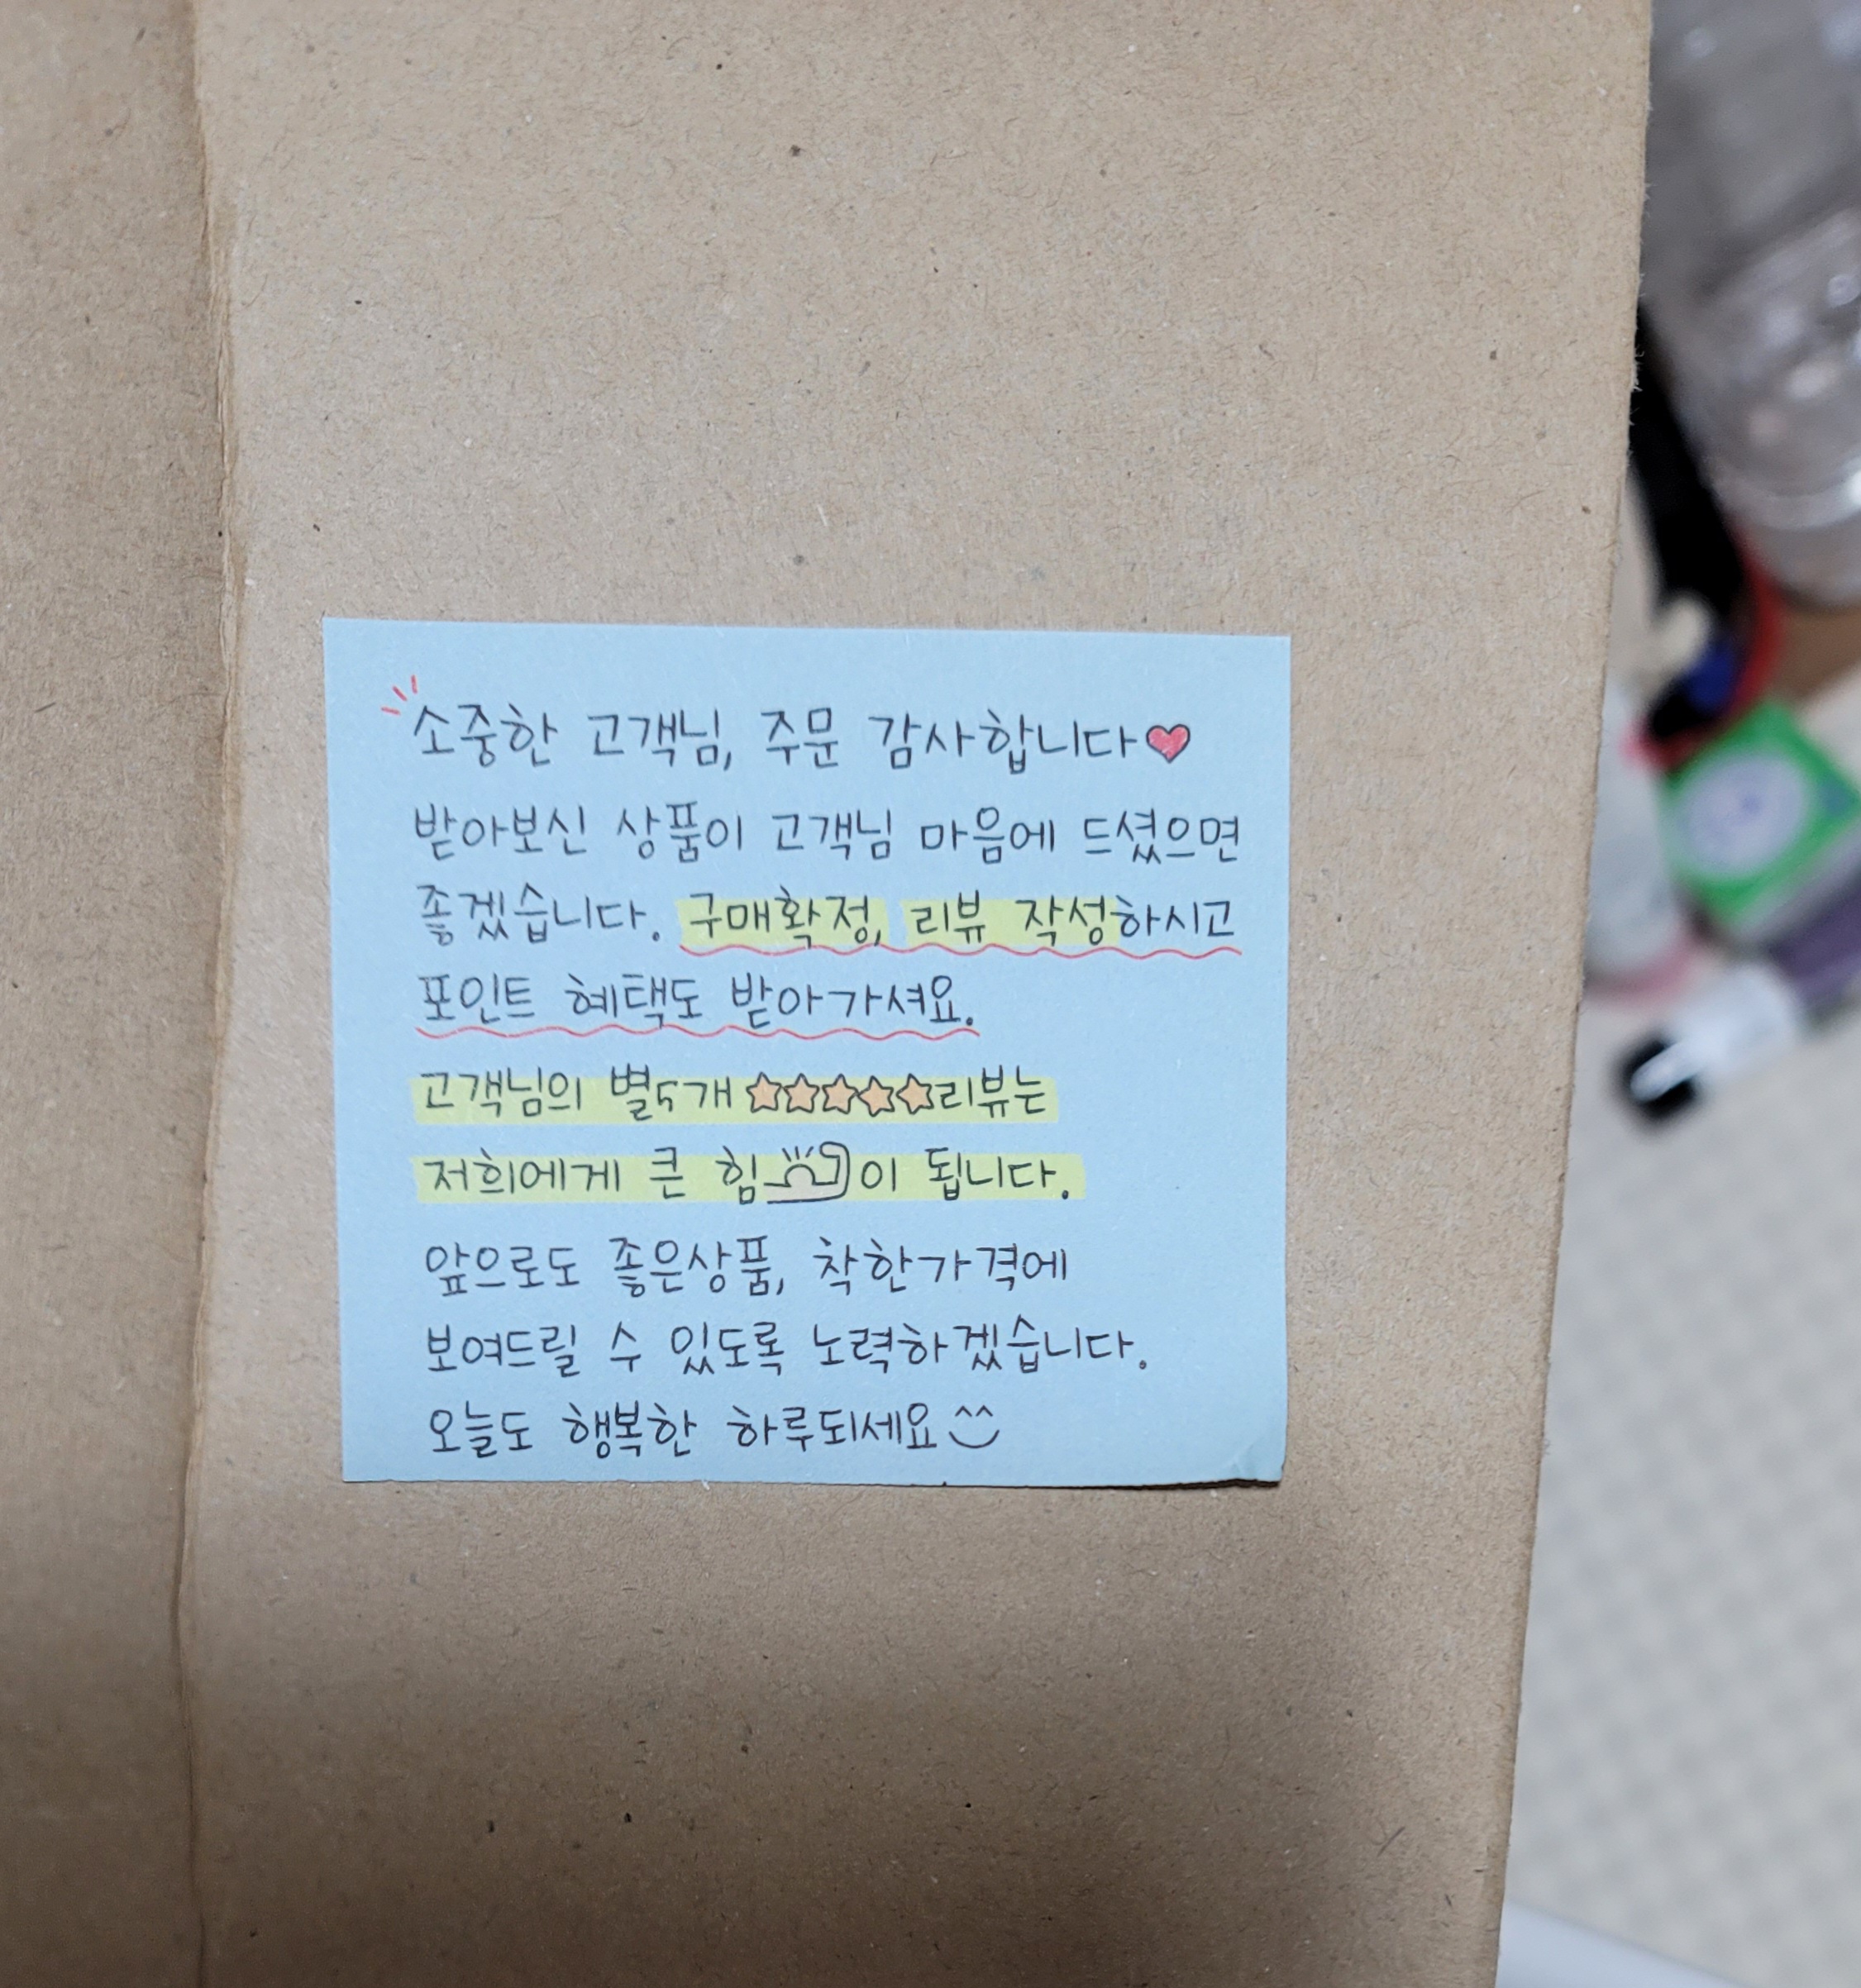 소중한 고객님, 주문 감사합니다♥
받아보신 상품이 고객님 마음에 드셨으면
좋겠습니다. 구매확정, 리뷰 작성하시고
포인트 혜택도 받아가셔요.
고객님의 별5개 ☆☆☆☆☆리뷰는
저희에게 큰 힘이 됩니다.
앞으로도 좋은상품, 착한가격에
보여드릴 수 있도록 노력하겠습니다.
오늘도 행복한 하루되세요^^